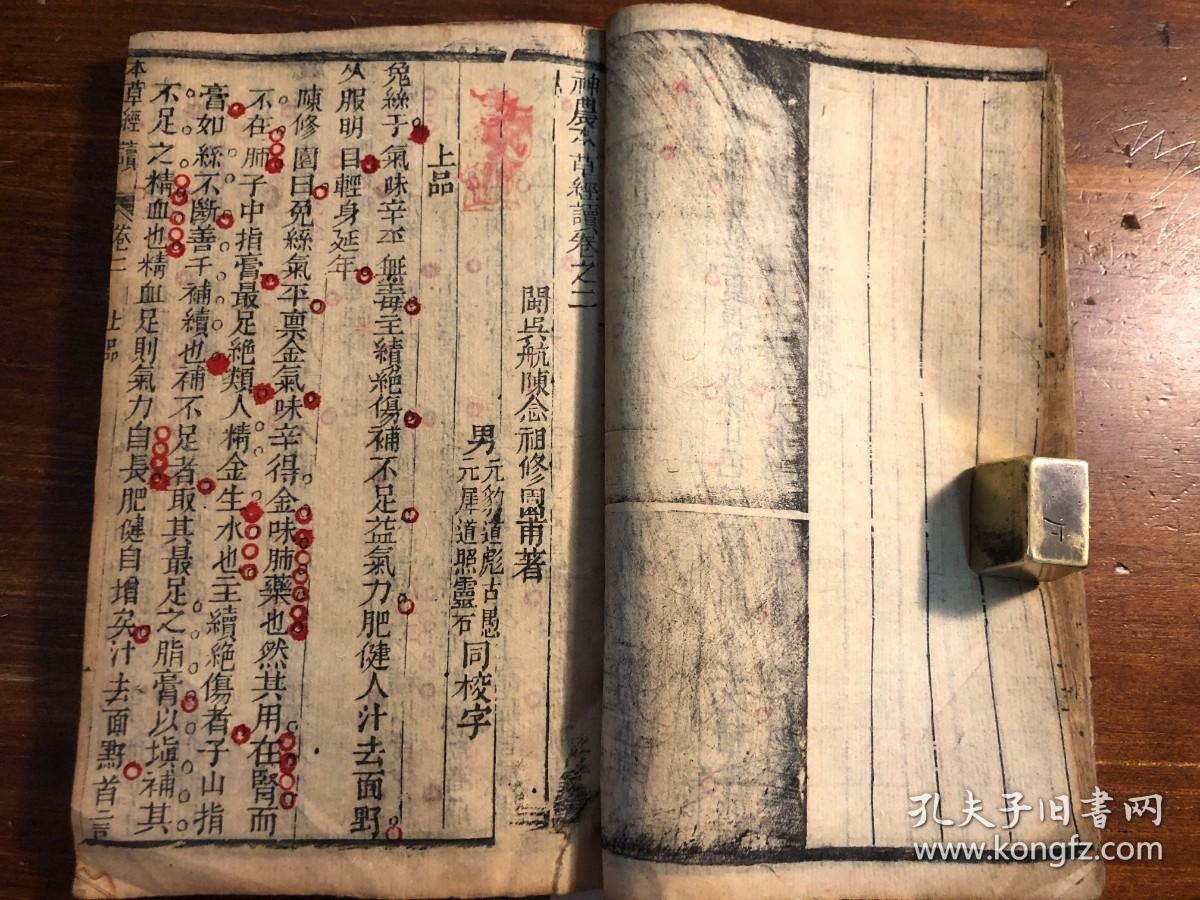 神農本草經讀卷之二
閩吳航陳念祖修園甫著
男元豹道彪古愚
元犀道照靈石同校字
上品
兔絲子氣味辛平無毒主續絕傷補不足益氣力肥健人汁去面䵟
久服明目輕身延年
陳修園曰兔絲氣平禀金氣味辛得金味肺藥也然其用在腎而
不在肺子中指膏最足絕類人精金生水也主續絕傷者子山指
膏如絲不斷善于補續也補不足者取其最足之脂膏以塡補其
不足之精血也精血足則氣力自長肥健自增矣汁去面䵟首言
本草經讀 卷二 上品
孔夫子旧书网
www.kongfz.com